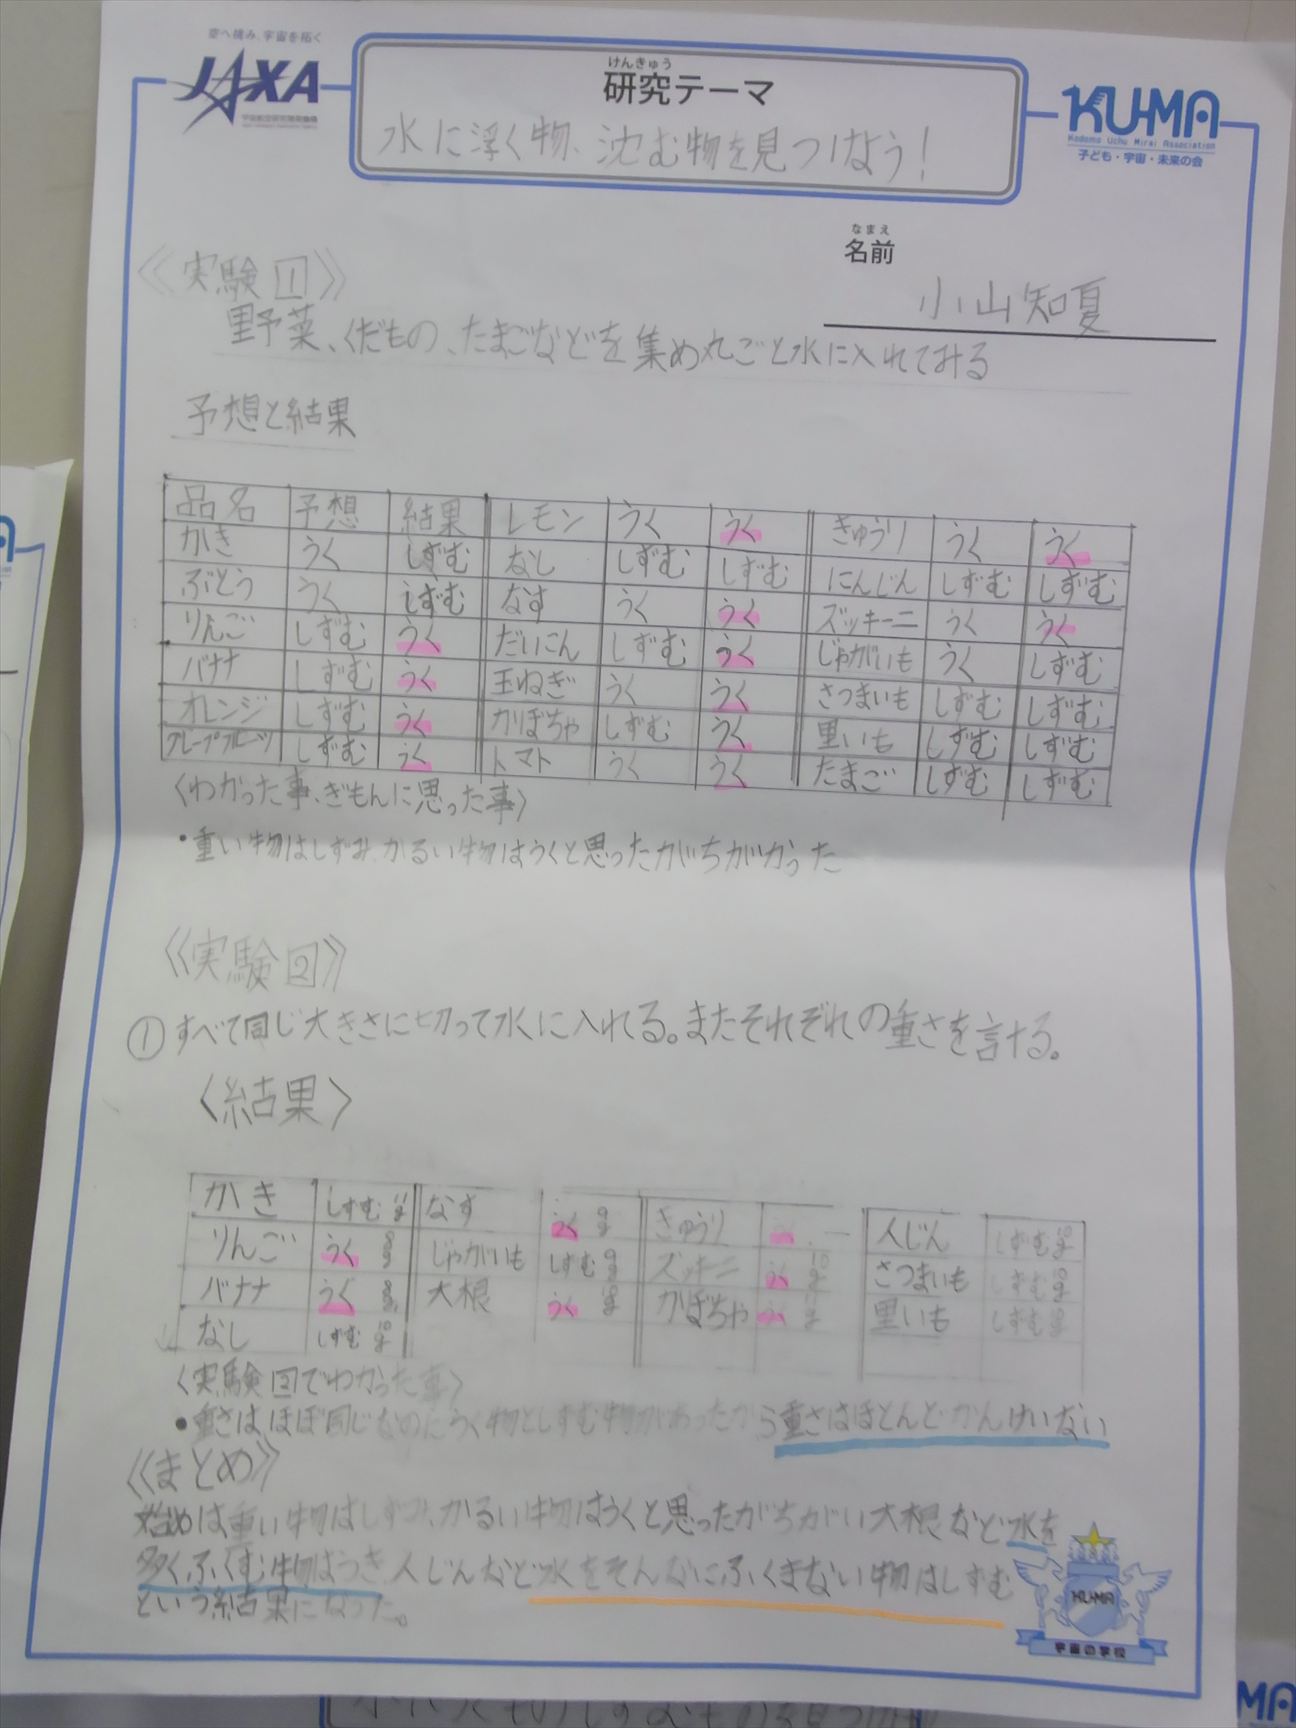 空へ挑み、宇宙を拓く
JAXA
けんきゅう
研究テーマ
KU-MA
Kodomo Uchu Mirai Association
子ども・宇宙・未来の会
水に浮く物、沈む物を見つけよう!
なまえ
名前
小山知夏
《実験1》
野菜、くだもの、たまごなどを集め丸ごと水に入れてみる
予想と結果
品名 予想 結果 レモン うく うく きゅうり うく うく
かき うく しずむ なし しずむ しずむ にんじん しずむ しずむ
ぶどう うく しずむ なす うく うく ズッキーニ うく うく
りんご しずむ うく だいこん しずむ うく じゃがいも うく しずむ
バナナ しずむ うく 玉ねぎ うく うく さつまいも しずむ しずむ
オレンジ しずむ うく かぼちゃ しずむ うく 里いも しずむ しずむ
グレープフルーツ しずむ うく トマト うく うく たまご しずむ しずむ
〈わかった事、ぎもんに思った事〉
・重い物はしずみ、かるい物はうくと思ったがちがかった
《実験2》
①すべて同じ大きさに切って水に入れる。またそれぞれの重さを言する。
〈結果〉
かき しずむ なす うく 9g きゅうり うく 人じん しずむ
りんご うく 8g じゃがいも しずむ 9g ズッキーニ うく 10g さつまいも しずむ
バナナ うく 大根 うく かぼちゃ うく 里いも しずむ
なし しずむ 10g
〈実験2でわかった事〉
・重さは、ほぼ同じなのにうく物としずむ物があったから重さはほとんどかんけいない
《まとめ》
始めは重い物はしずみ、かるい物はうくと思ったがちがい大根など水を
多くふくむ物はうき、人じんなど水をそんなにふくまない物はしずむ
という結果になった。
KU-MA
宇宙の学校